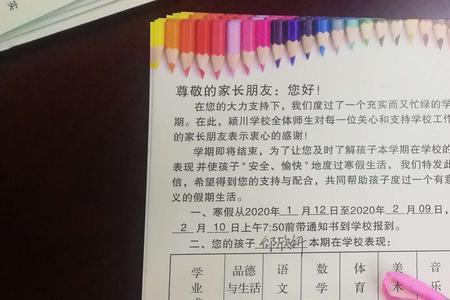 尊敬的家长朋友：您好！
在您的大力支持下，我们度过了一个充实而又忙绿的学
期。在此，颍川学校全体师生对每一位关心和支持学校工作
的家长朋友表示衷心的感谢！
学期即将结束，为了让您及时了解孩子本学期在学校的
表现并使孩子"安全、愉快"地度过寒假生活，我们特发此
信，希望得到您的支持与配合，共同帮助孩子度过一个有意
义的假期生活。
一、寒假从2020年 1 月 12 日至2020年 2 月 09 日，
2 月 10 日上午7:50前带通知书到学校报到。
二、您的孩子 邹欣妍 本期在学校表现：
学 品德 语 数 体 美 音
业 与生活 文 学 育 术 乐